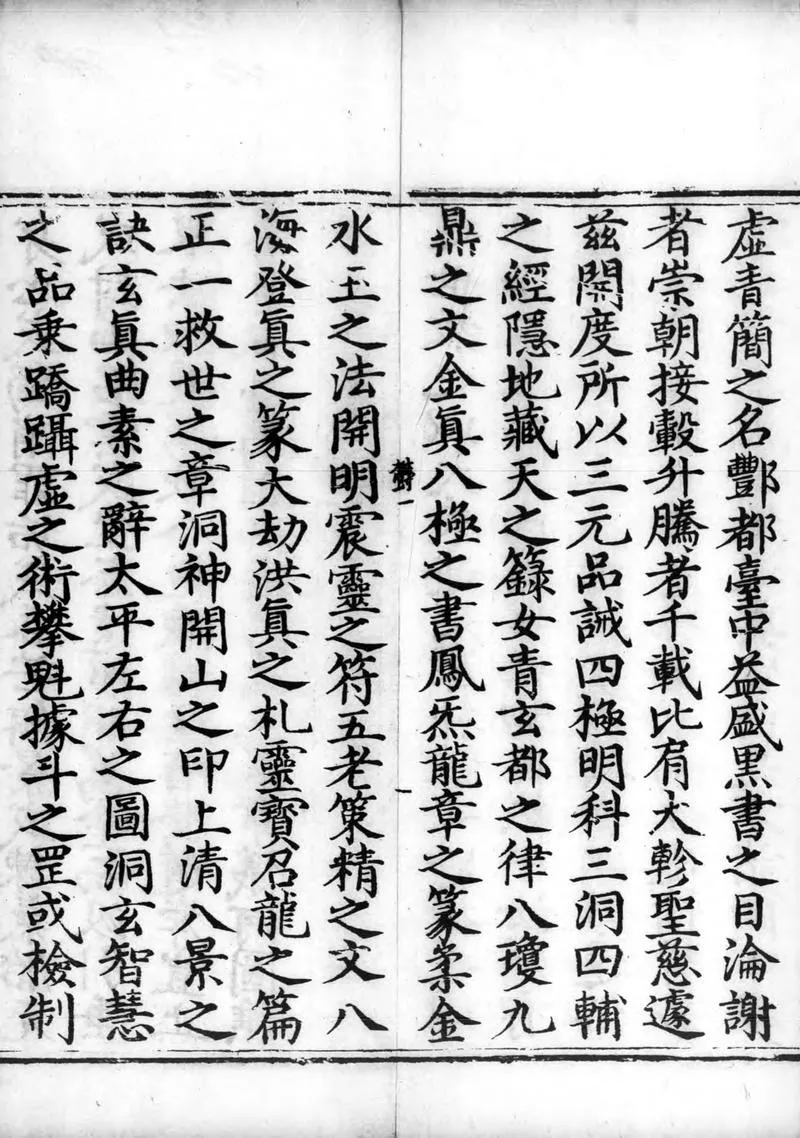 虛青簡之名酆都臺中益盛黑書之目淪謝
者崇朝接轂升騰者千載比肩大軫聖慈遽
茲開度所以三元品誡四極明科三洞四輔
之經隱地藏天之籙女青玄都之律八瓊九
鼎之文金真八極之書鳳炁龍章之篆柔金
水玉之法開明震靈之符五老策精之文八
海登眞之篆大劫洪眞之札靈寳召龍之篇
正一救世之章洞神開山之印上清八景之
訣玄眞曲素之辭太平左右之圖洞玄智慧
之品乗蹻躡虛之術攀魁據斗之罡或檢制